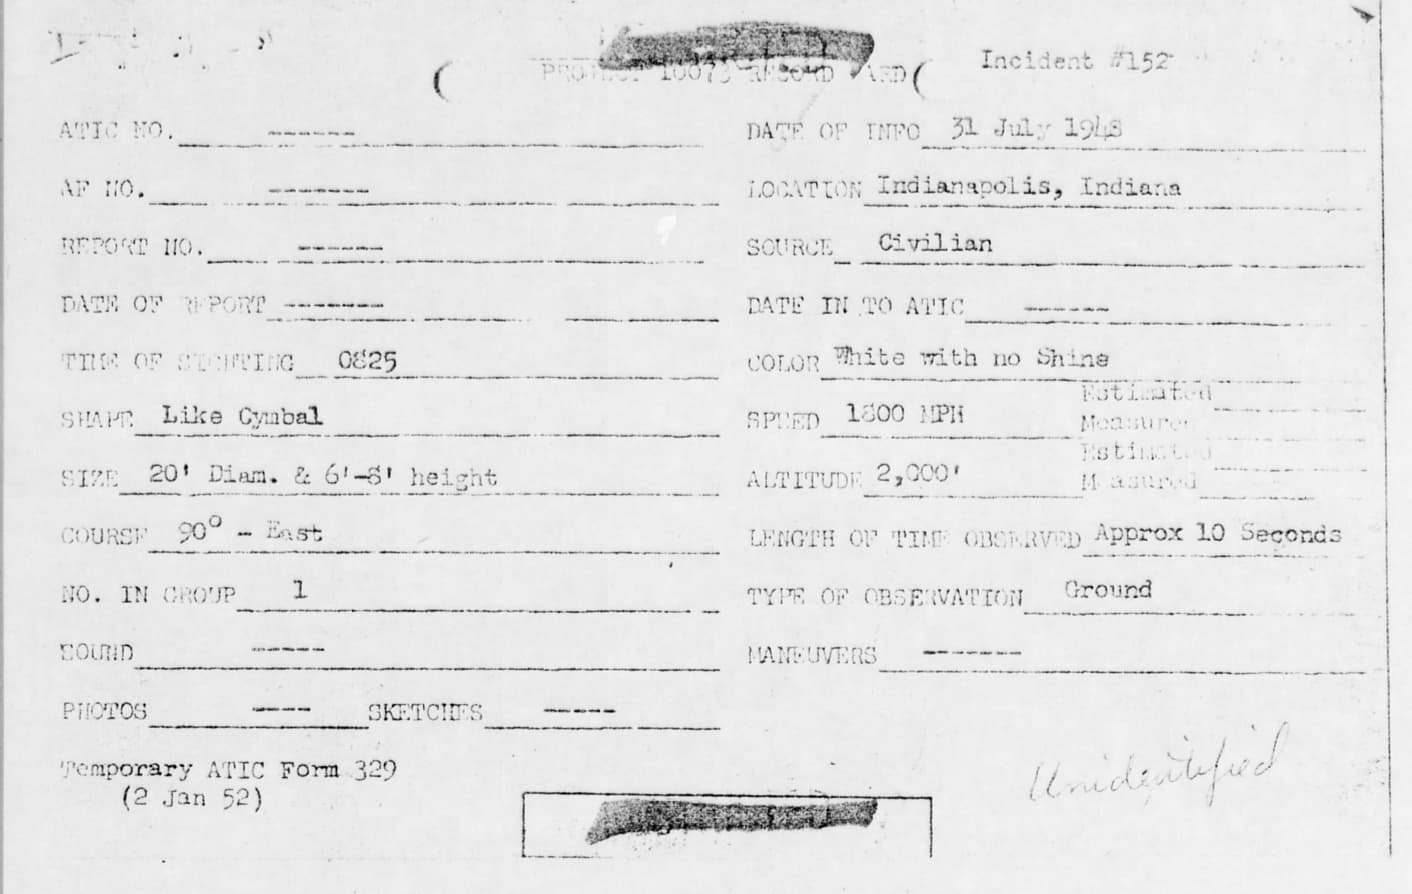 PROJECT 10073 RECORD CARD
Incident #152
ATIC NO. ------
DATE OF INFO 31 July 1948
AF NO. -------
LOCATION Indianapolis, Indiana
REPORT NO. ------
SOURCE Civilian
DATE OF REPORT -------
DATE IN TO ATIC ------
TIME OF SIGHTING 0825
COLOR White with no Shine
SHAPE Like Cymbal
SPEED 1800 MPH Estimated
Measured
SIZE 20' Diam. & 6'-8' height
ALTITUDE 2,000' Estimated
Measured
COURSE 90° - East
LENGTH OF TIME OBSERVED Approx 10 Seconds
NO. IN GROUP 1
TYPE OF OBSERVATION Ground
SOUND -----
MANEUVERS -------
PHOTOS ---- SKETCHES -----
Temporary ATIC Form 329
(2 Jan 52)
Unidentified